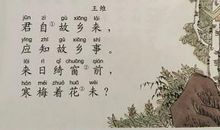 王维
jūn zì gù xiāng lái
君自①故乡来，
yīng zhī gù xiāng shì
应知故乡事。
lái rì qǐ chuāng qián
来日绮窗②前，
hán méi zhuó huā wèi
寒梅着花③未？